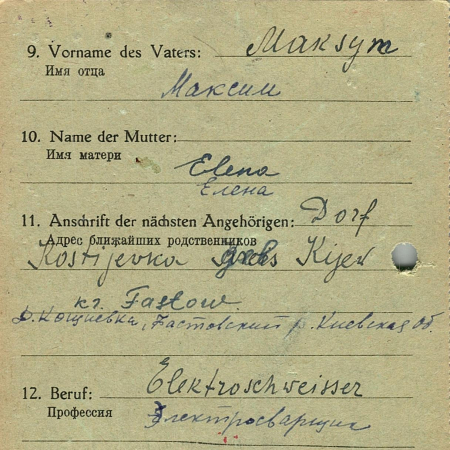 9. Vorname des Vaters: Maksym
Имя отца
Максим
10. Name der Mutter:
Имя матери
Elena
Елена
11. Anschrift der nächsten Angehörigen: Dorf
Адрес ближайших родственников
Kostijevka Kijew
кг. Fastow.
Фастовский р. Киевская об.
12. Beruf: Elektroschweisser
Профессия
Электросварщик